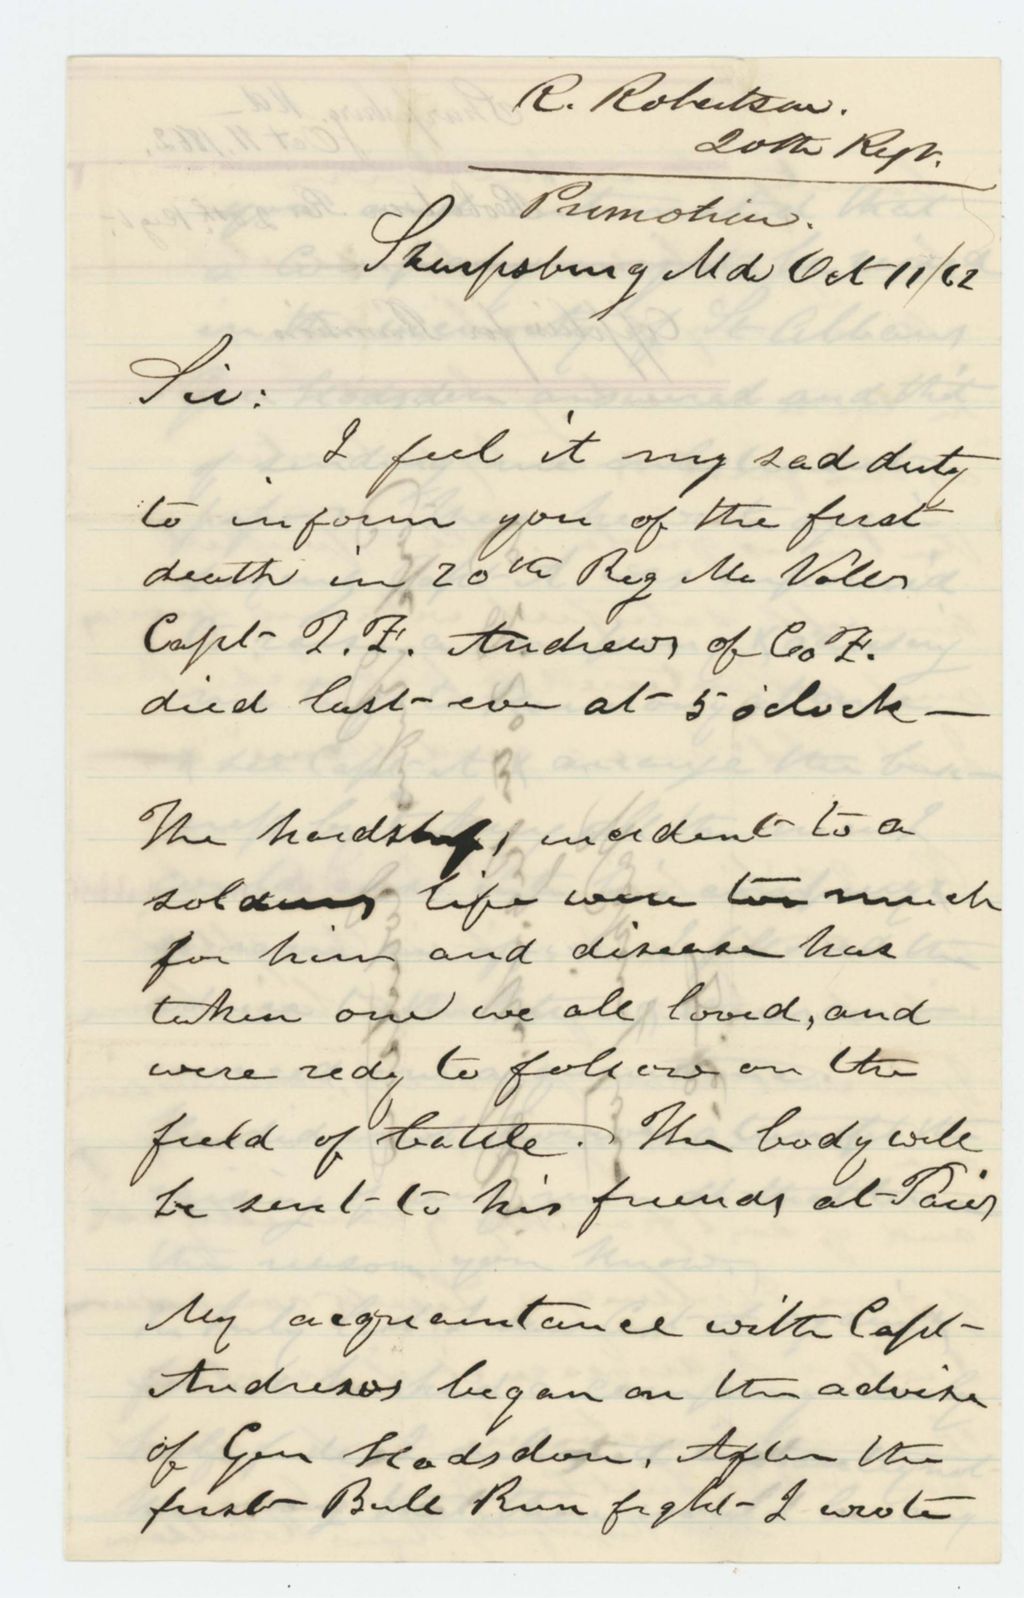 R. Robertson.
20th Regt.
Promotion.
Sharpsburg Md Oct 11/62
Sir:
I feel it my sad duty
to inform you of the first
death in 20th Reg Me Vollrs
Capt T. F. Andrews of Co F.
died last eve at 5 o'clock —
The hardships incident to a
soldiers life were too much
for him and disease has
taken one we all loved, and
were redy to follow on the
field of battle. The body will
be sent to his friends at Paris
My acquaintance with Capt
Andrews began on the advise
of Gen Hodsdon. After the
first Bull Run fight I wrote